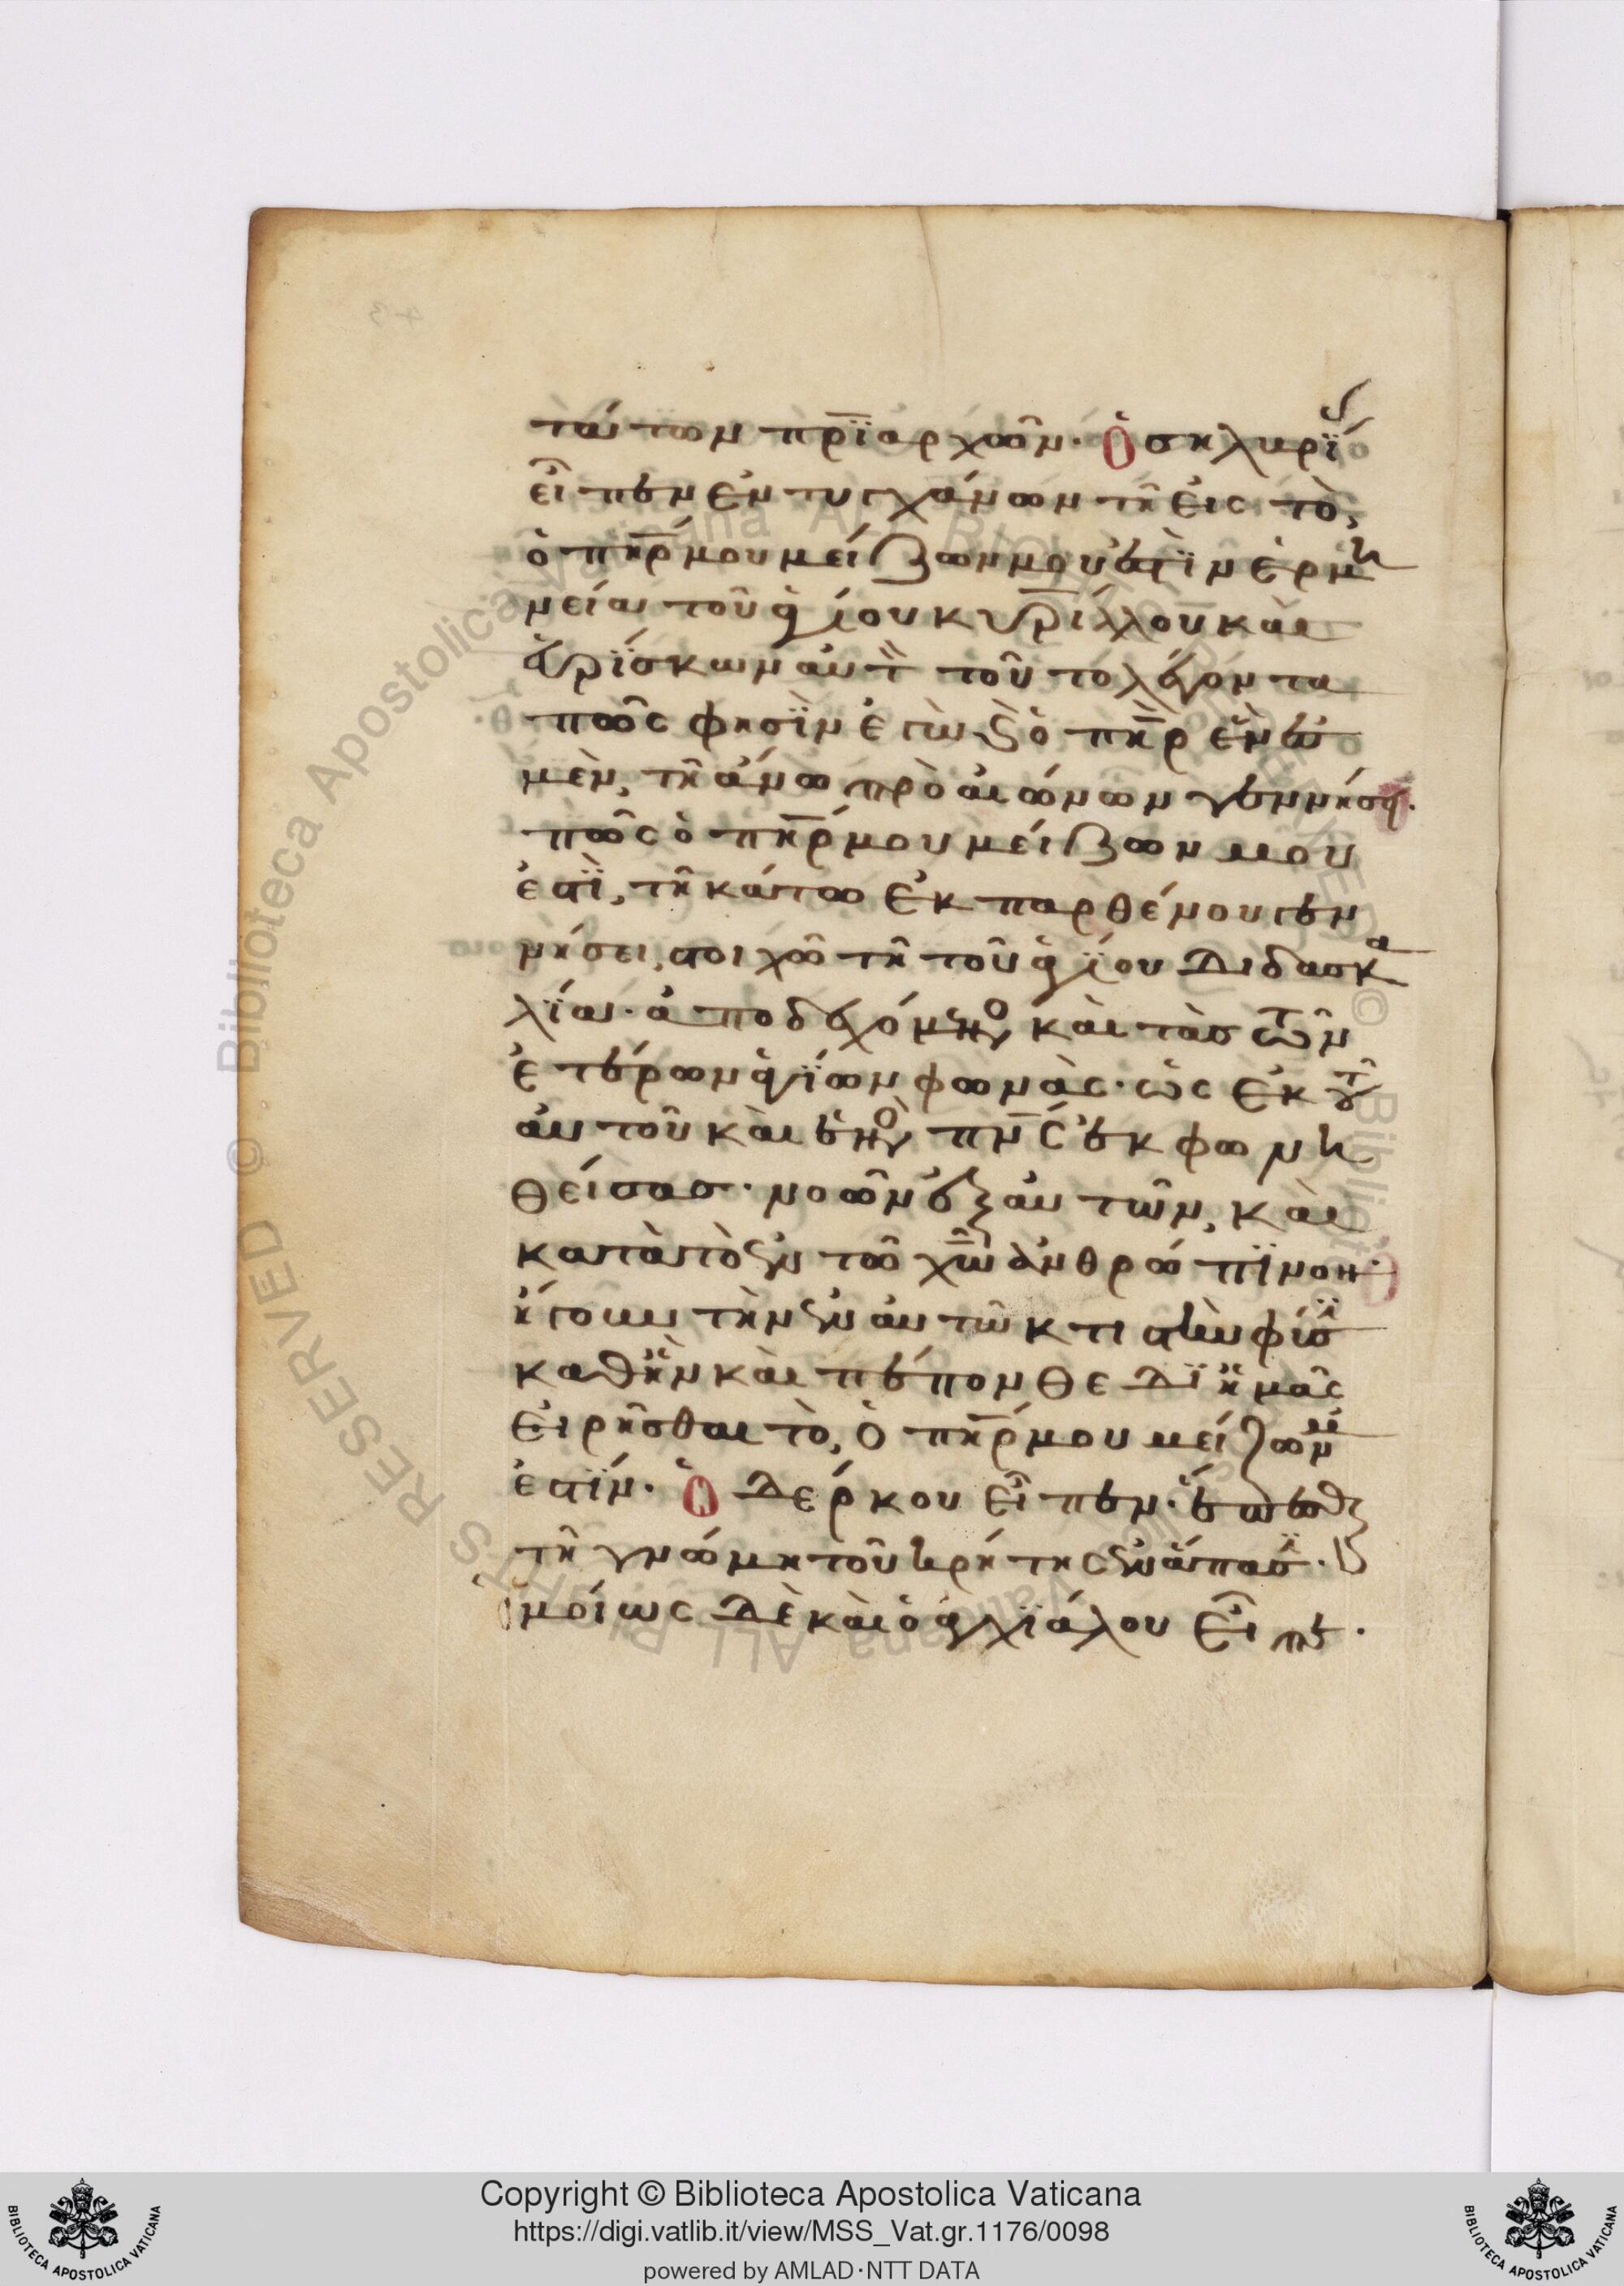 τάτων πρϊαρχῶν· Ὁ σηλυρΐ(ας)
εἶπεν ἐντυγχάνων τῆ εἰς τὸ,
ὁ πηρ μου μείζων μου ἐστὶν ἑρμη
νεία τοῦ ἁγίου κυρίλλου καὶ
εὑρίσκων αὐτ τοῦτο λέγοντα
πῶς φησὶν ἐγὼ καὶ ὁ πηρ ἕν ἐσ
μὲν, τῆ ἄνω πρὸ αἰώνων γεννήσει·
πῶς ὁ πηρ μου μείζων μου
ἐστὶ, τῆ κάτω ἐκ παρθένου γεν
νήσει, στοιχῶ τῆ τοῦ ἁγίου διδασκα
λία· ἀποδεχόμενος καὶ τὰς τῶν
ἑτέρων ἁγίων φωνὰς· ὡς ἐκ τοῦ
αὐτοῦ καὶ ἑνὸς πνς ἐκφωνη
θείσας· νοῶν ἐξ αὐτῶν, καὶ
κατὰ τὸ ἐν τῶ χῶ ἀνθρώπινον·
ἤγουν τὴν ἐν αὐτῶ κτιστὴν φύσιν
καθ ἣν καὶ πέπονθε δι ἡμᾶς
εἰρῆσθαι τὸ, ὁ πηρ μου μείζων μου
ἐστίν. Ὁ δέρκου εἶπεν· ἕπομαι
τῆ γνώμη τοῦ κρήτης ἐν ἅπασιν·
ὁμοίως δὲ καὶ ὁ ἀγχιάλου εἶπε·
Copyright © Biblioteca Apostolica Vaticana
https://digi.vatlib.it/view/MSS_Vat.gr.1176/0098
powered by AMLAD·NTT DATA
BIBLIOTECA APOSTOLICA VATICANA
BIBLIOTECA APOSTOLICA VATICANA